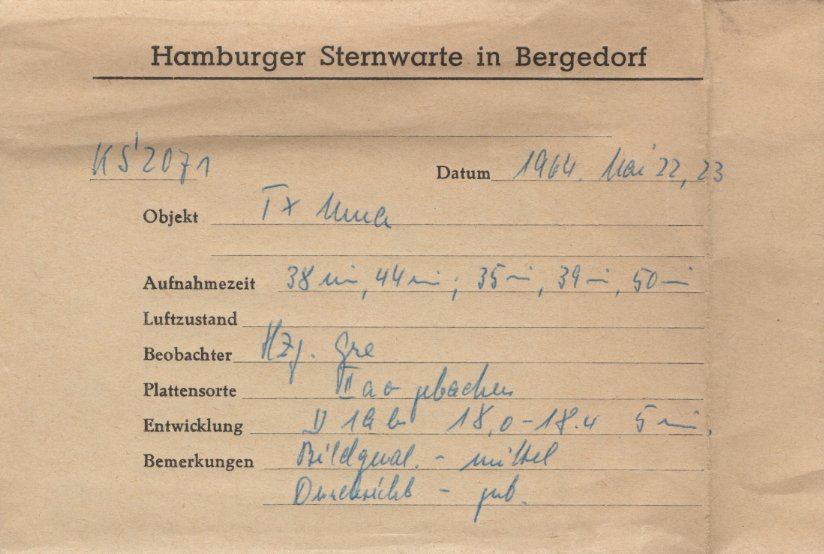 Hamburger Sternwarte in Bergedorf
KS 2071 Datum 1964. Mai 22, 23
Objekt TX Uma
Aufnahmezeit 38 min, 44 min; 35 min, 39 min, 50 min
Luftzustand
Beobachter Hzg. Gre
Plattensorte II a o gebacken
Entwicklung D 19 b 18,0 - 18.4 5 min.
Bemerkungen Bildqual. - mittel
Durchsicht - gut.